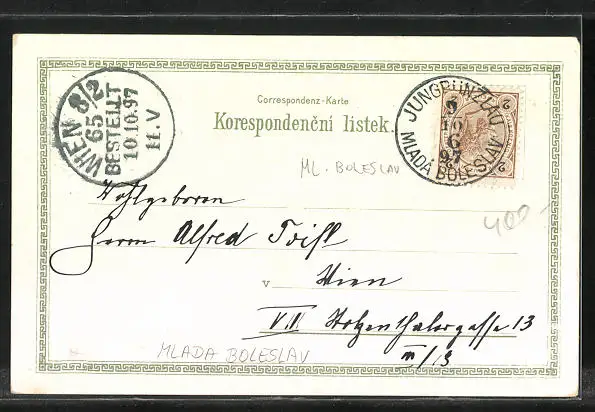 WIEN 8/2
65
BESTELLT
10.10.97
11.V
Correspondenz-Karte
Korespondenční listek.
JUNGBUNZLAU
9
10
6
97
MLADÁ BOLESLAV
2
2
ML. BOLESLAV
400-
Wohlgeboren
Herrn Alfred
v Wien
VIII 13
III/13
MLADA BOLESLAV